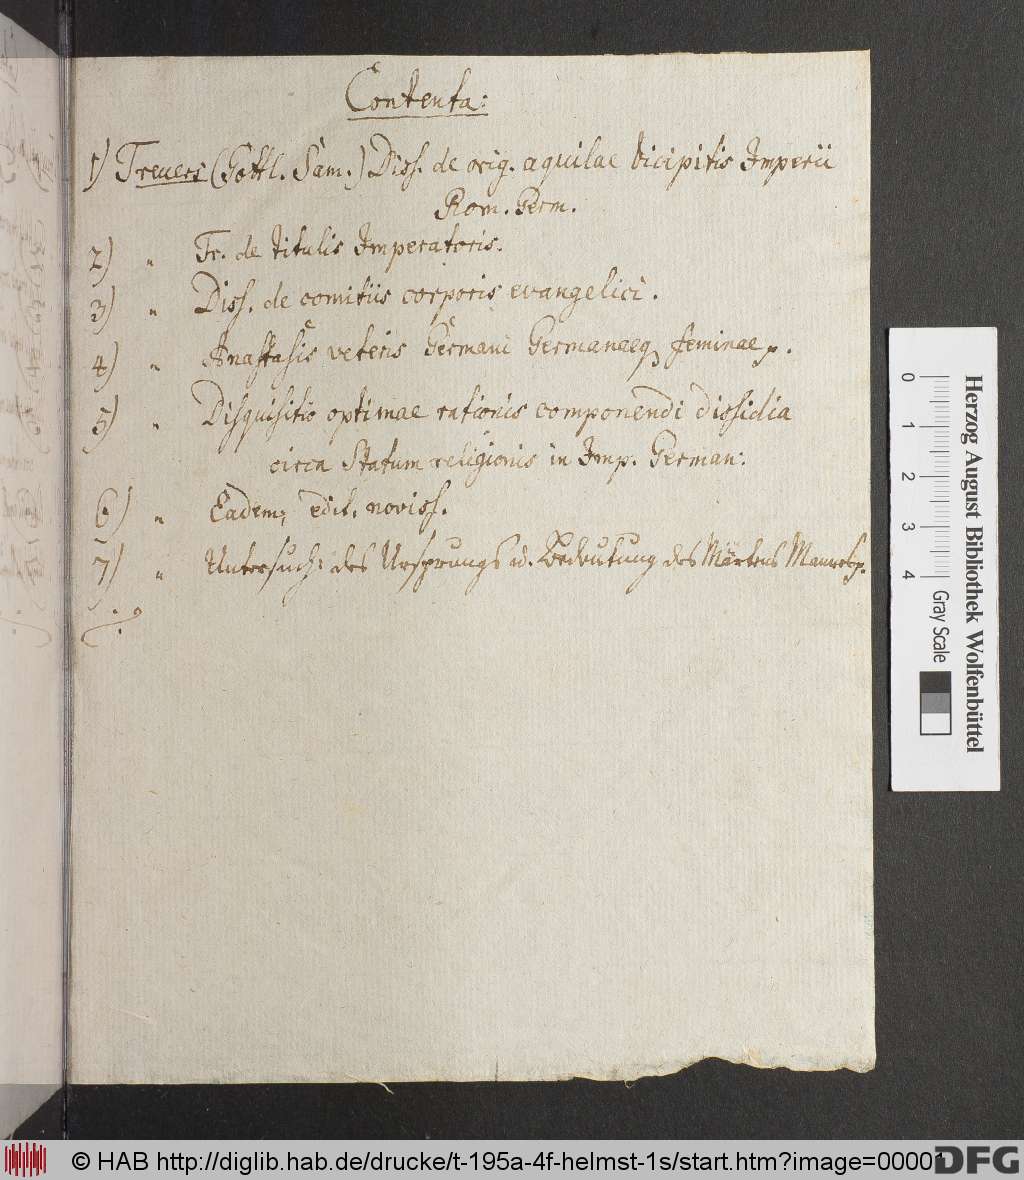 Contenta:
1) Treuers (Gottl. Sam.) Diss. de orig. aquilae bicipitis Imperii
Rom. Germ.
2) " Tr. de titulis Imperatoris.
3) " Diss. de comitiis corporis evangelici.
4) " Anastasis veteris Germani Germanaeq feminae
5) " Disquisitio optimae rationis componendi dissidia
circa Statum religionis in Imp. German:
6) " Eadem, edit. noviss.
7) " Untersuch: des Ursprungs u. Bedeutung des Märtens Mannes
Herzog August Bibliothek Wolfenbüttel
0 1 2 3 4 Gray Scale
© HAB http://diglib.hab.de/drucke/t-195a-4f-helmst-1s/start.htm?image=00001
DFG